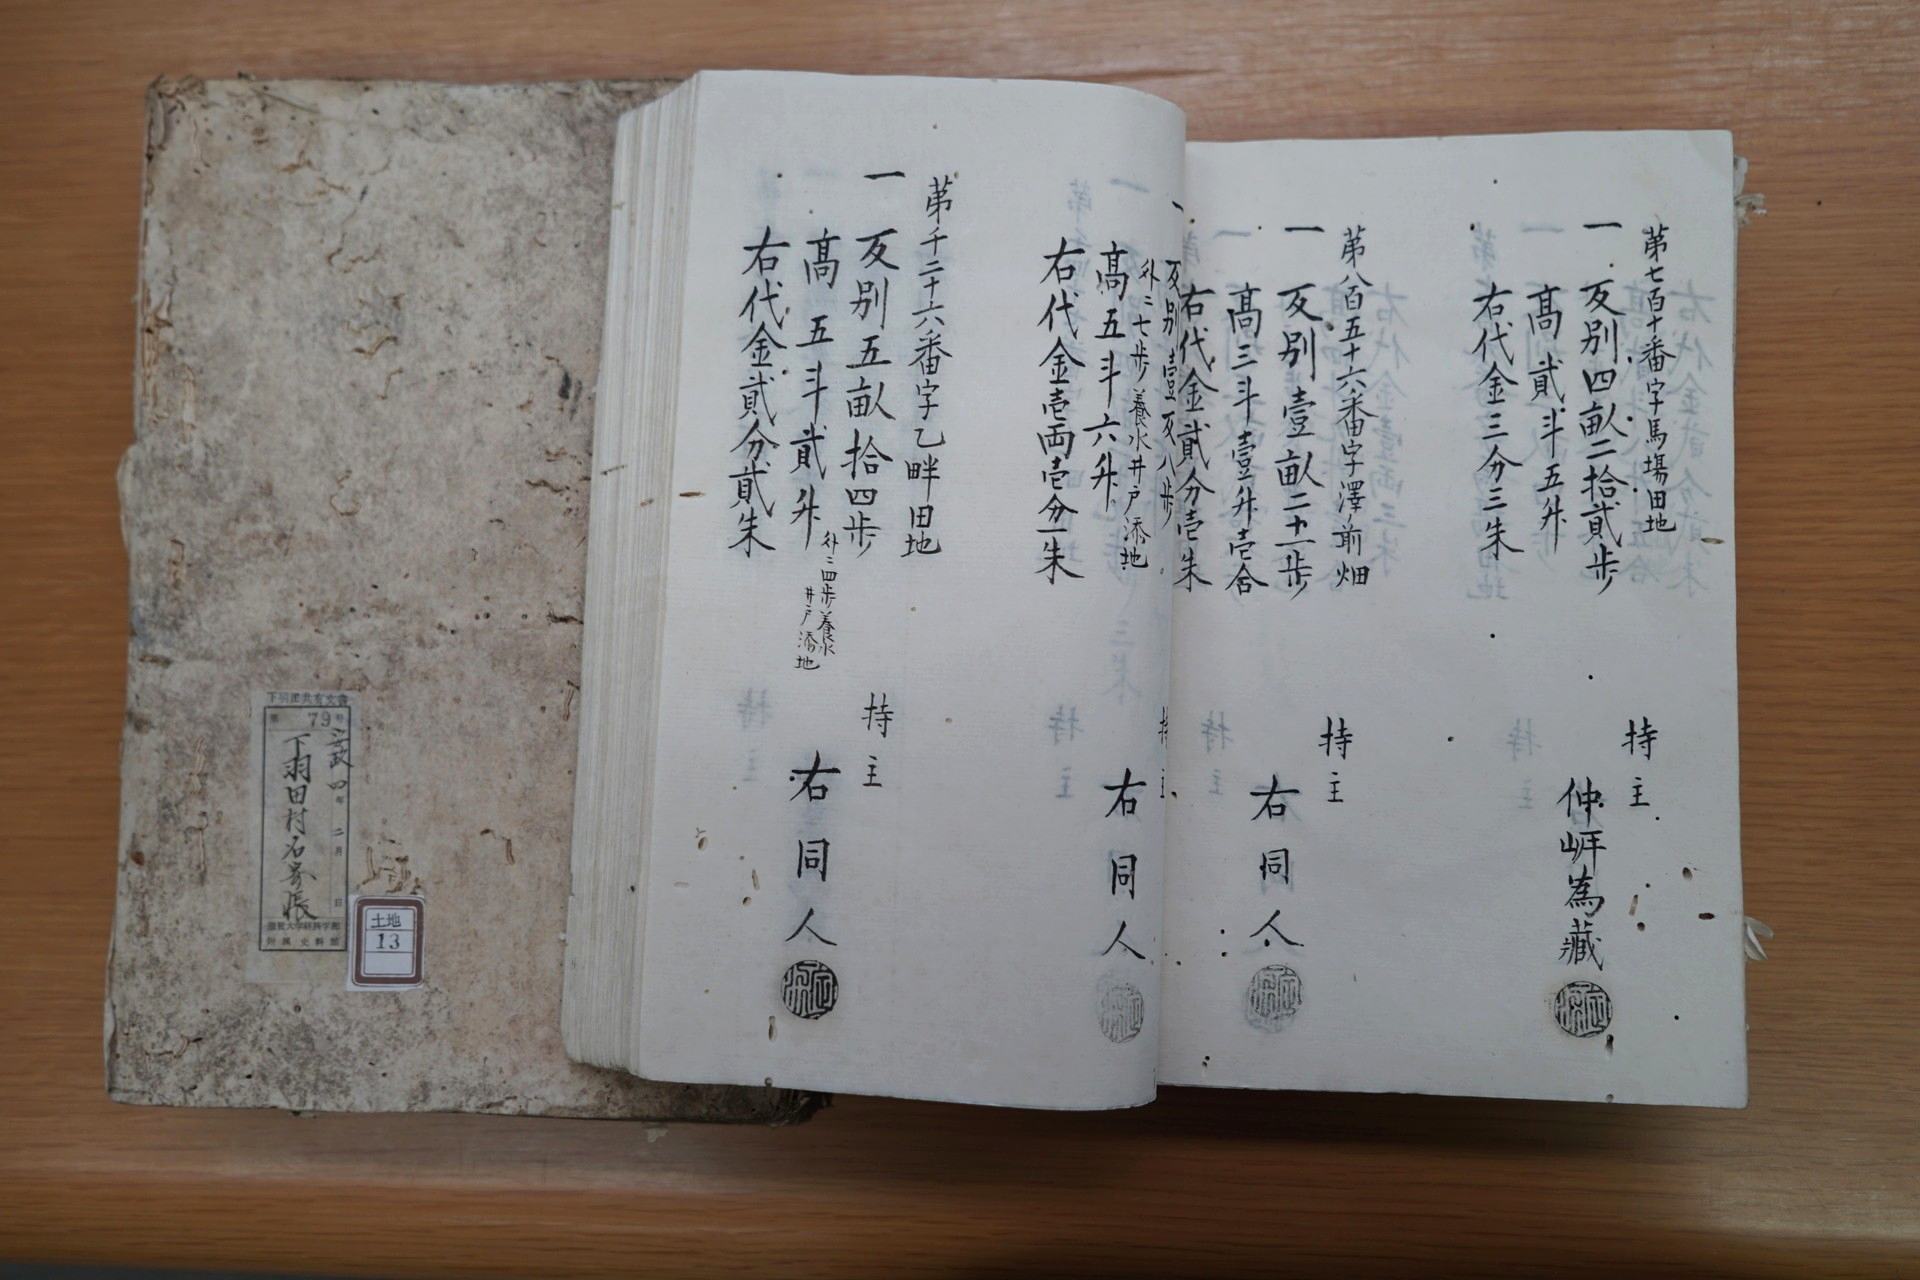 第七百十番字馬場田地
一
反別四畝二拾貳歩
高貳斗五升
右代金三分三朱
持主
仲岼為藏
第八百五十六番字澤ノ前畑
一
反別壹畝二十一歩
高三斗壹升壱合
右代金貳分壱朱
持主
右同人
一
反別壹反八歩
外ニ七歩養水井戸添地
高五斗六升
右代金壱両壱分一朱
持主
右同人
第千二十六番字乙畔田地
一
反別五畝拾四歩
外ニ四歩養水
井戸添地
高五斗貳升
右代金貳分貳朱
持主
右同人
下羽田共有文書
第79号
安政四年二月日
下羽田村名寄帳
滋賀大学経済学部
附属史料館
土地
13